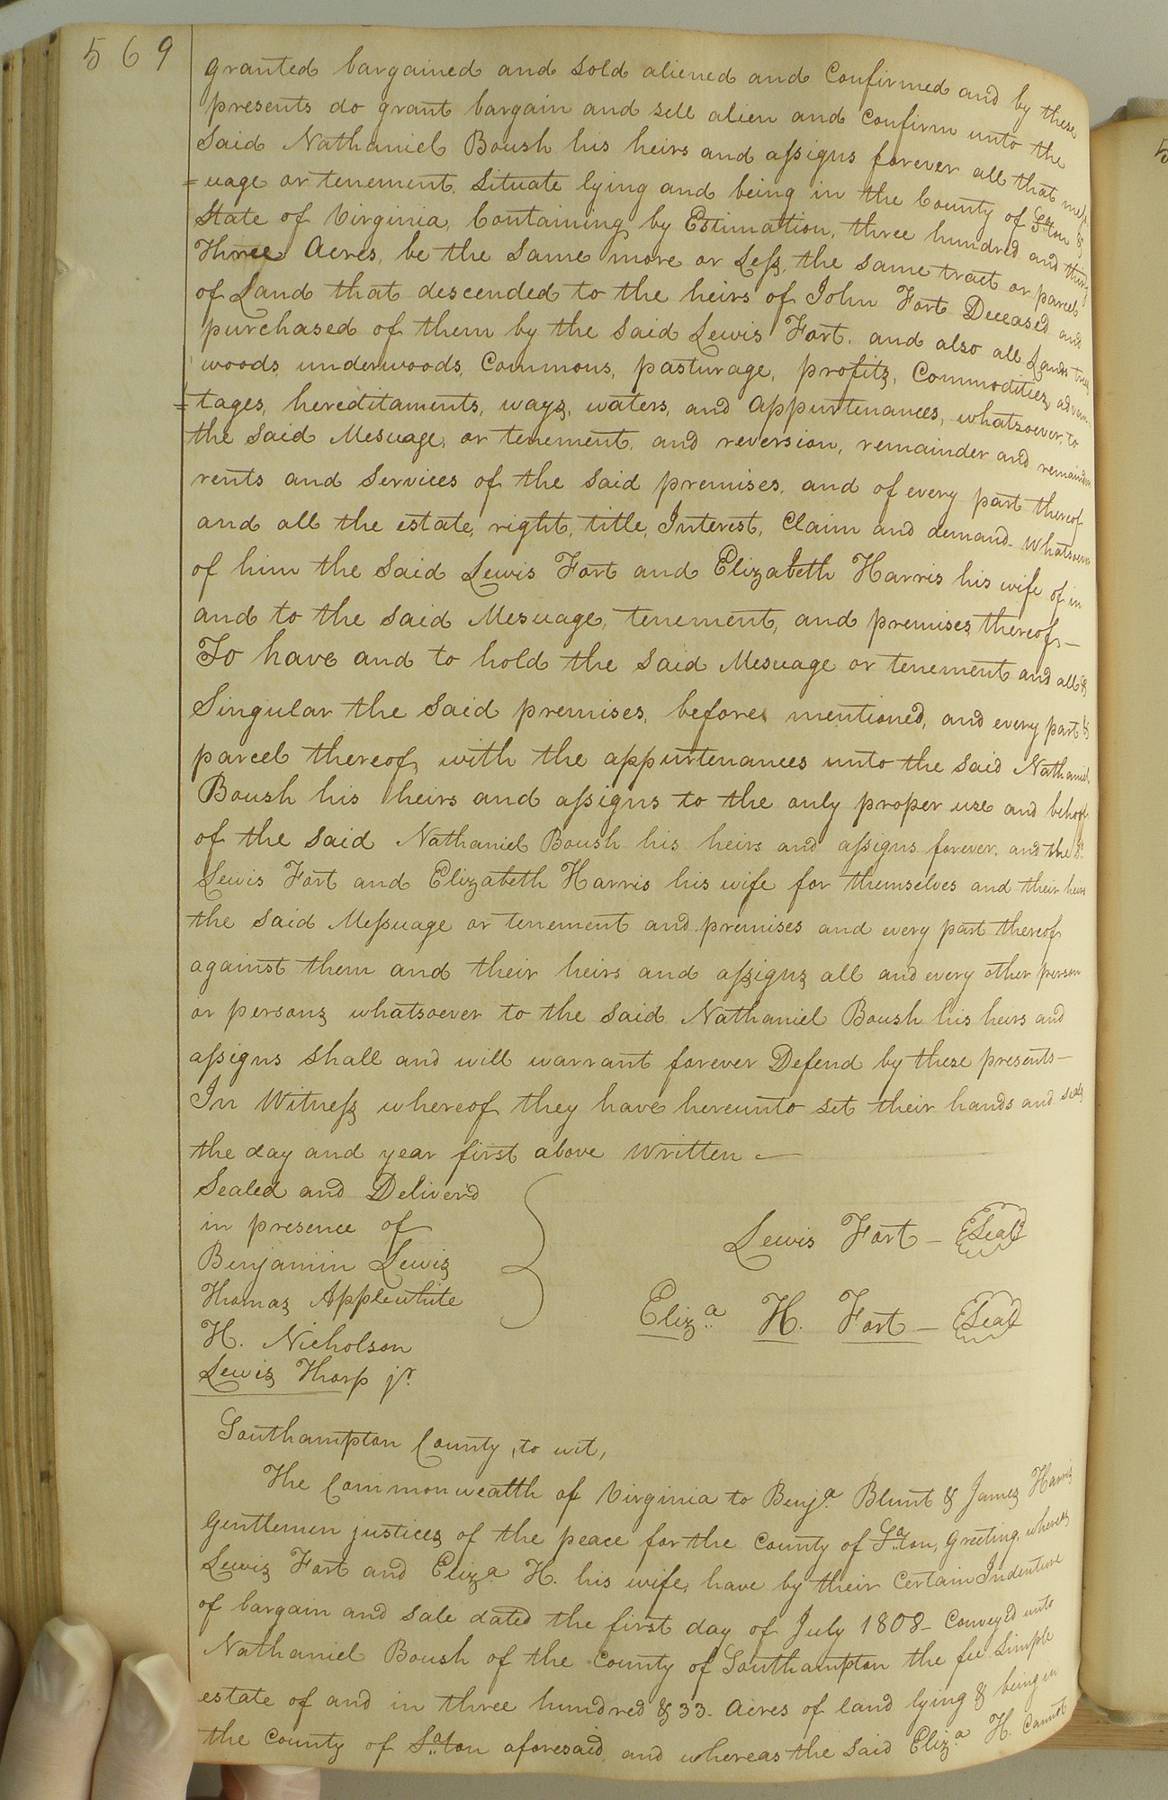 569
granted bargained and sold aliened and Confirmed and by these
presents do grant bargain and sell alien and Confirm unto the
Said Nathaniel Boush his heirs and assigns forever all that mess
=uage or tenement Situate lying and being in the County of Sºton &
State of Virginia, Containing by Estimation, three hundred and thirty
Three Acres, be the Same more or Less, the same tract or parcel
of Land that descended to the heirs of John Fort Deceased and
purchased of them by the said Lewis Fort. and also all Lands trees
woods, underwoods, Commons, pasturage, profits, Commodities, advan
=tages, hereditaments, ways, waters, and appurtenances, whatsoever, to
the said Mesuage, or tenement, and reversion, remainder and remainders
rents and Services of the said premises, and of every part thereof
and all the estate, right, title, Interest, Claim and demand whatsoever
of him the said Lewis Fort and Elizabeth Harris his wife of in
and to the said Mesuage, tenement, and premises thereof—
To have and to hold the said Mesuage or tenement and all &
Singular the said premises, before mentioned, and every part &
parcel thereof, with the appurtenances unto the said Nathaniel
Boush his heirs and assigns to the only proper use and behoof
of the said Nathaniel Boush his heirs and assigns forever. and the sd.
Lewis Fort and Elizabeth Harris his wife for themselves and their heirs
the said Messuage or tenement and premises and every part thereof
against them and their heirs and assigns all and every other person
or persons whatsoever to the said Nathaniel Boush his heirs and
assigns shall and will warrant forever Defend by these presents—
In Witness whereof they have hereunto set their hands and seals
the day and year first above written —
Sealed and Deliver'd
in presence of
Benjamin Lewis
Thomas Applewhite
H. Nicholson
Lewis Thorp jr.
Lewis Fort — Seal
Eliza H. Fort — Seal
Southampton County, to wit,
The Commonwealth of Virginia to Benja. Blunt & James Harris
Gentlemen justices of the peace for the County of Sºton, Greeting, whereas
Lewis Fort and Eliza H. his wife, have by their Certain Indenture
of bargain and sale dated the first day of July 1808— Conveyed unto
Nathaniel Boush of the County of Southampton the fee Simple
estate of and in three hundred & 33. Acres of land lying & being in
the County of Sºton aforesaid, and whereas the said Eliza H. Cannot